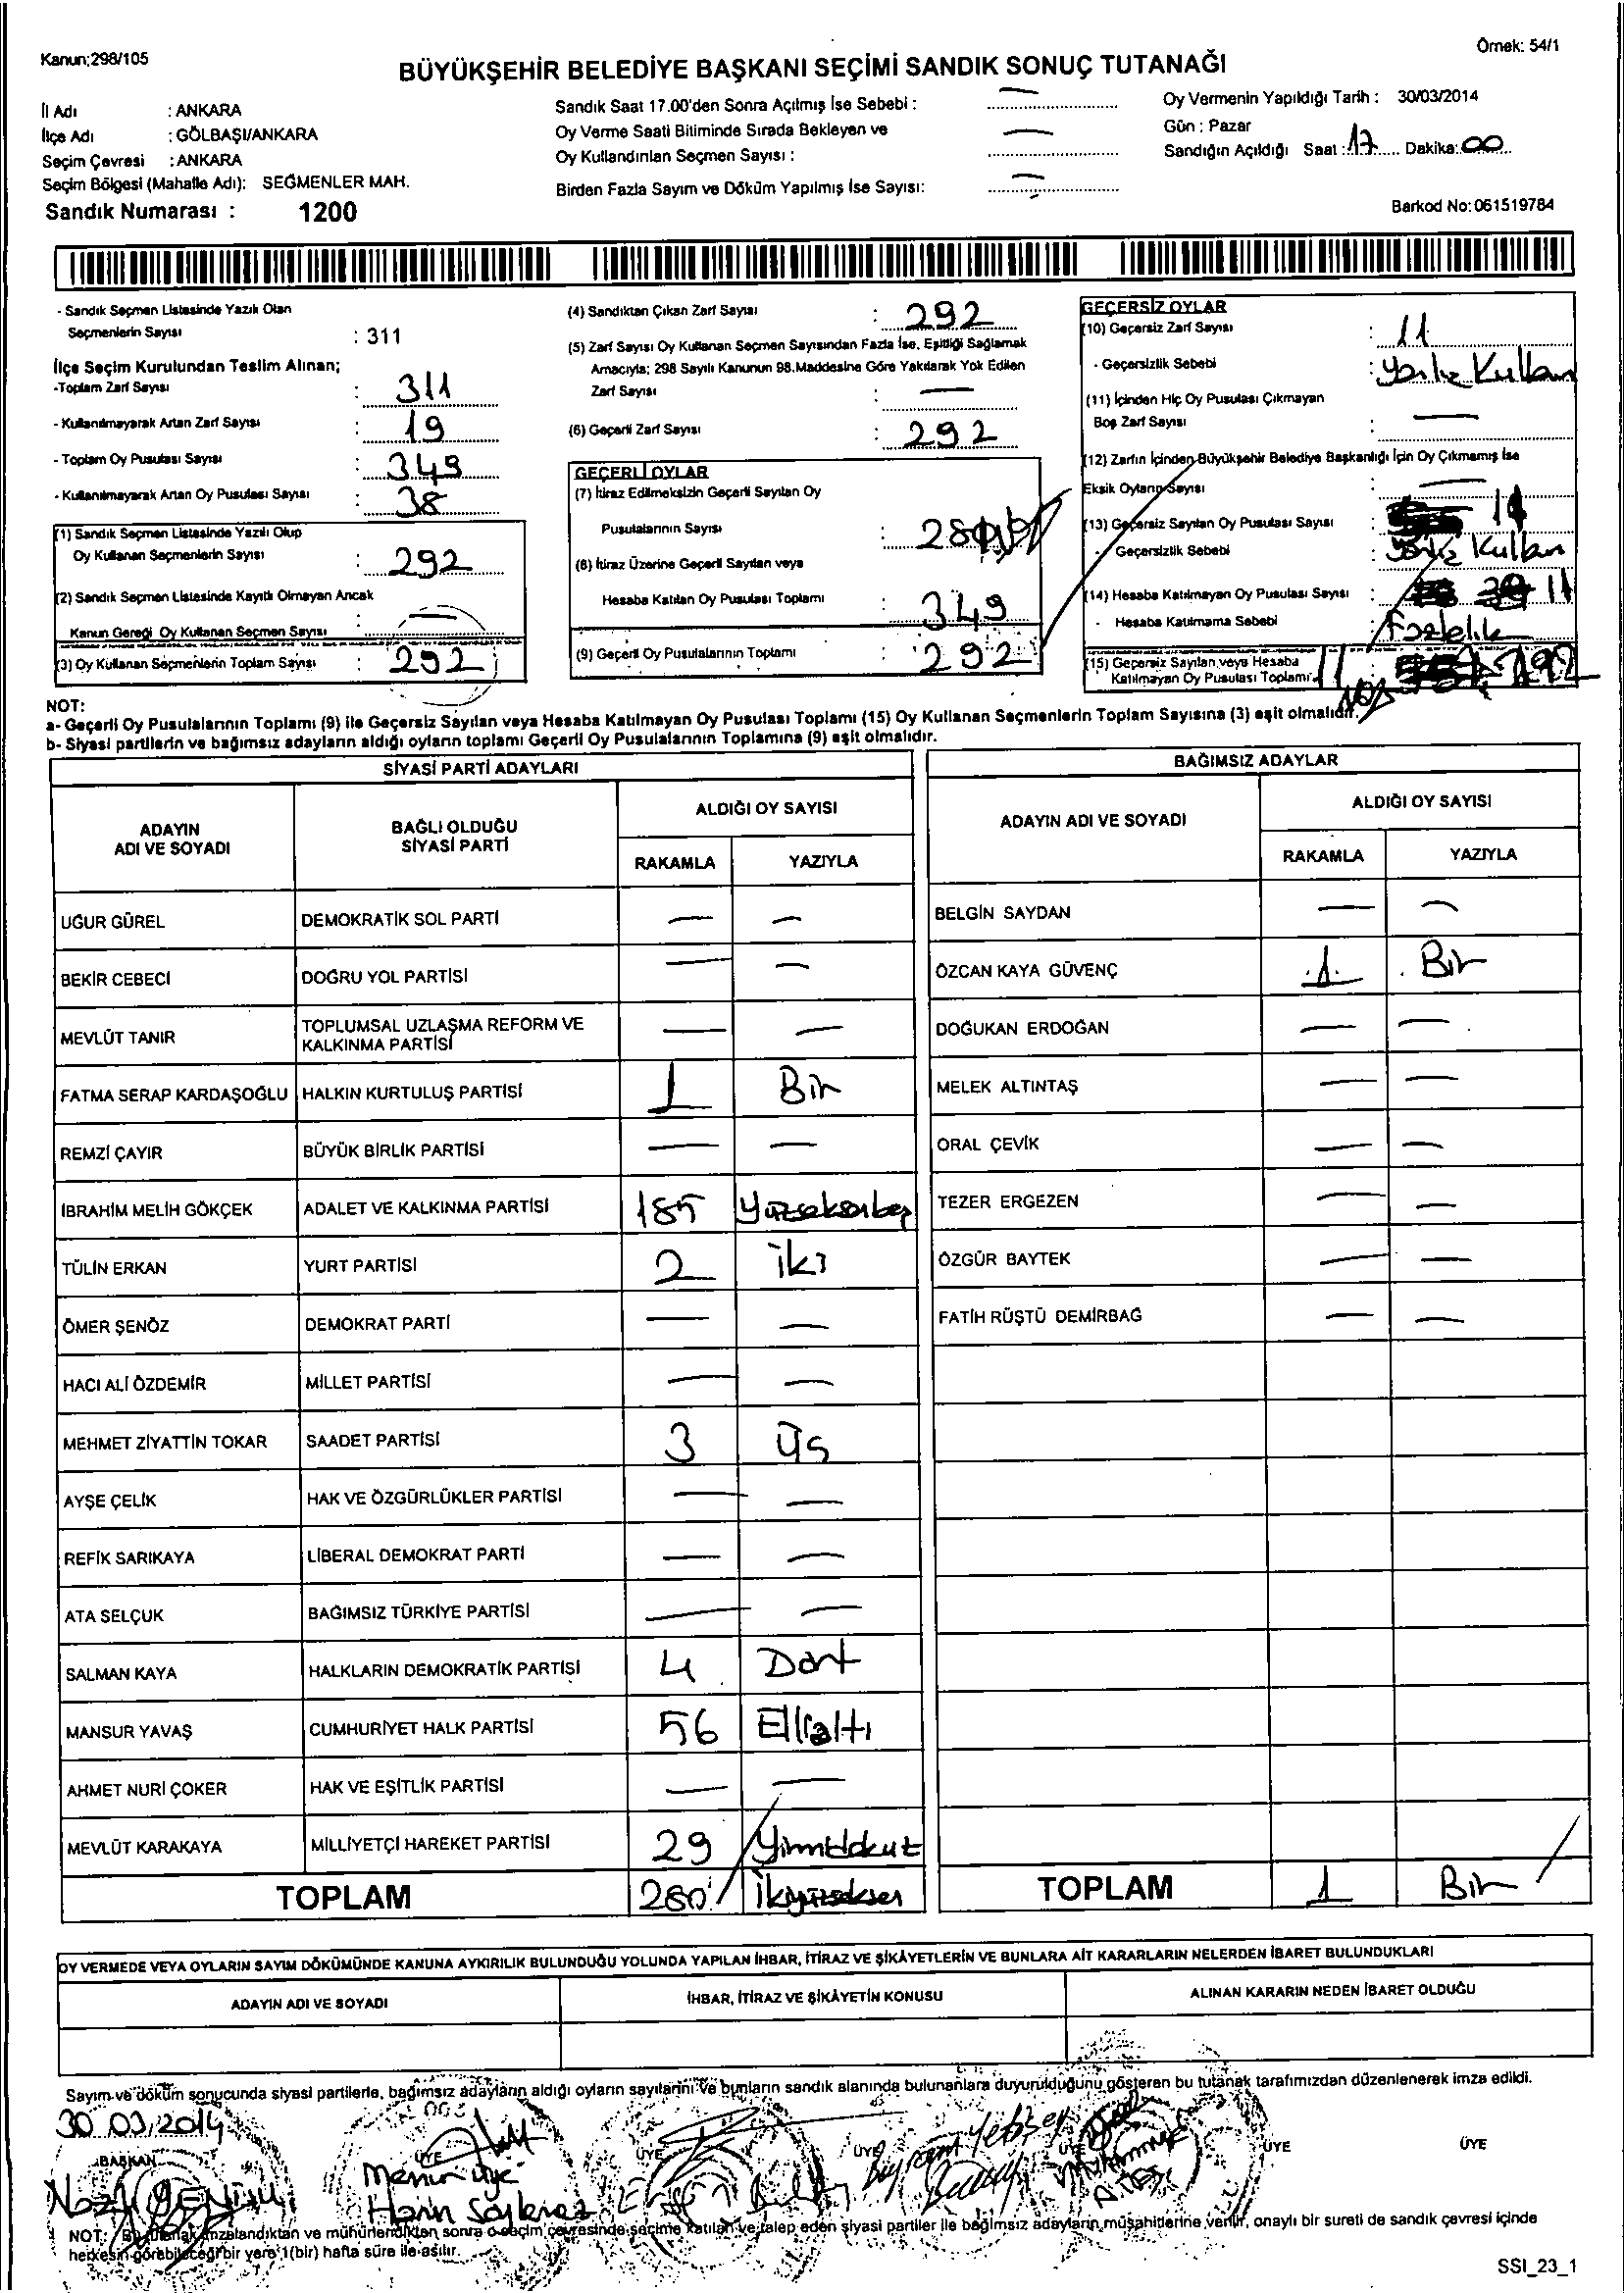 Kanun;298/105
Örnek: 54/1
BÜYÜKŞEHİR BELEDİYE BAŞKANI SEÇİMİ SANDIK SONUÇ TUTANAĞI
İl Adı : ANKARA
İlçe Adı : GÖLBAŞI/ANKARA
Seçim Çevresi : ANKARA
Seçim Bölgesi (Mahalle Adı): SEĞMENLER MAH.
Sandık Numarası : 1200
Sandık Saat 17.00'den Sonra Açılmış İse Sebebi : —
Oy Verme Saati Bitiminde Sırada Bekleyen ve
Oy Kullandırılan Seçmen Sayısı : —
Birden Fazla Sayım ve Döküm Yapılmış İse Sayısı: —
Oy Vermenin Yapıldığı Tarih : 30/03/2014
Gün : Pazar
Sandığın Açıldığı Saat :17 Dakika:00
Barkod No:061519784
- Sandık Seçmen Listesinde Yazılı Olan
Seçmenlerin Sayısı : 311
İlçe Seçim Kurulundan Teslim Alınan;
-Toplam Zarf Sayısı : 311
- Kullanılmayarak Artan Zarf Sayısı : 19
- Toplam Oy Pusulası Sayısı : 349
- Kullanılmayarak Artan Oy Pusulası Sayısı : 38
(1) Sandık Seçmen Listesinde Yazılı Olup
Oy Kullanan Seçmenlerin Sayısı : 292
(2) Sandık Seçmen Listesinde Kayıtlı Olmayan Ancak
Kanun Gereği Oy Kullanan Seçmen Sayısı : —
(3) Oy Kullanan Seçmenlerin Toplam Sayısı : 292
(4) Sandıktan Çıkan Zarf Sayısı : 292
(5) Zarf Sayısı Oy Kullanan Seçmen Sayısından Fazla İse, Eşitliği Sağlamak
Amacıyla; 298 Sayılı Kanunun 98.Maddesine Göre Yakılarak Yok Edilen
Zarf Sayısı : —
(6) Geçerli Zarf Sayısı : 292
GEÇERLİ OYLAR
(7) İtiraz Edilmeksizin Geçerli Sayılan Oy
Pusulalarının Sayısı :
(8) İtiraz Üzerine Geçerli Sayılan veya
Hesaba Katılan Oy Pusulası Toplamı : 349
(9) Geçerli Oy Pusulalarının Toplamı : 292
GEÇERSİZ OYLAR
(10) Geçersiz Zarf Sayısı : 11
- Geçersizlik Sebebi :
(11) İçinden Hiç Oy Pusulası Çıkmayan
Boş Zarf Sayısı : —
(12) Zarfın İçinden Büyükşehir Belediye Başkanlığı İçin Oy Çıkmamış İse
Eksik Oyların Sayısı : —
(13) Geçersiz Sayılan Oy Pusulası Sayısı : 11
- Geçersizlik Sebebi :
(14) Hesaba Katılmayan Oy Pusulası Sayısı : 11
- Hesaba Katılmama Sebebi :
(15) Geçersiz Sayılan veya Hesaba
Katılmayan Oy Pusulası Toplamı: 11
NOT:
a- Geçerli Oy Pusulalarının Toplamı (9) ile Geçersiz Sayılan veya Hesaba Katılmayan Oy Pusulası Toplamı (15) Oy Kullanan Seçmenlerin Toplam Sayısına (3) eşit olmalıdır.
b- Siyasi partilerin ve bağımsız adayların aldığı oyların toplamı Geçerli Oy Pusulalarının Toplamına (9) eşit olmalıdır.
SİYASİ PARTİ ADAYLARI
ADAYIN ADI VE SOYADI BAĞLI OLDUĞU SİYASİ PARTİ ALDIĞI OY SAYISI
RAKAMLA YAZIYLA
UĞUR GÜREL DEMOKRATİK SOL PARTİ — —
BEKİR CEBECİ DOĞRU YOL PARTİSİ — —
MEVLÜT TANIR TOPLUMSAL UZLAŞMA REFORM VE KALKINMA PARTİSİ — —
FATMA SERAP KARDAŞOĞLU HALKIN KURTULUŞ PARTİSİ 1 Bir
REMZİ ÇAYIR BÜYÜK BİRLİK PARTİSİ — —
İBRAHİM MELİH GÖKÇEK ADALET VE KALKINMA PARTİSİ 185 Yüzseksenbeş
TÜLİN ERKAN YURT PARTİSİ 2 İki
ÖMER ŞENÖZ DEMOKRAT PARTİ — —
HACI ALİ ÖZDEMİR MİLLET PARTİSİ — —
MEHMET ZİYATTİN TOKAR SAADET PARTİSİ 3 Üç
AYŞE ÇELİK HAK VE ÖZGÜRLÜKLER PARTİSİ — —
REFİK SARIKAYA LİBERAL DEMOKRAT PARTİ — —
ATA SELÇUK BAĞIMSIZ TÜRKİYE PARTİSİ — —
SALMAN KAYA HALKLARIN DEMOKRATİK PARTİSİ 4 Dört
MANSUR YAVAŞ CUMHURİYET HALK PARTİSİ 56 Ellialtı
AHMET NURİ ÇOKER HAK VE EŞİTLİK PARTİSİ — —
MEVLÜT KARAKAYA MİLLİYETÇİ HAREKET PARTİSİ 29 Yirmidokuz
TOPLAM 280 İkiyüzseksen
BAĞIMSIZ ADAYLAR
ADAYIN ADI VE SOYADI ALDIĞI OY SAYISI
RAKAMLA YAZIYLA
BELGİN SAYDAN — —
ÖZCAN KAYA GÜVENÇ 1 Bir
DOĞUKAN ERDOĞAN — —
MELEK ALTINTAŞ — —
ORAL ÇEVİK — —
TEZER ERGEZEN — —
ÖZGÜR BAYTEK — —
FATİH RÜŞTÜ DEMİRBAĞ — —
TOPLAM 1 Bir
OY VERMEDE VEYA OYLARIN SAYIM DÖKÜMÜNDE KANUNA AYKIRILIK BULUNDUĞU YOLUNDA YAPILAN İHBAR, İTİRAZ VE ŞİKÂYETLERİN VE BUNLARA AİT KARARLARIN NELERDEN İBARET BULUNDUKLARI
ADAYIN ADI VE SOYADI İHBAR, İTİRAZ VE ŞİKÂYETİN KONUSU ALINAN KARARIN NEDEN İBARET OLDUĞU
Sayım ve döküm sonucunda siyasi partilerle, bağımsız adayların aldığı oyların sayılarını ve bunların sandık alanında bulunanlara duyurulduğunu gösteren bu tutanak tarafımızdan düzenlenerek imza edildi.
30.03.2014
BAŞKAN ÜYE ÜYE ÜYE ÜYE ÜYE ÜYE
Memur üye
NOT: Bu tutanak imzalandıktan ve mühürlendikten sonra o seçim çevresinde seçime katılan ve talep eden siyasi partiler ile bağımsız adayların müşahitlerine verilir, onaylı bir sureti de sandık çevresi içinde
herkesin görebileceği bir yere 1(bir) hafta süre ile asılır.
SSI_23_1